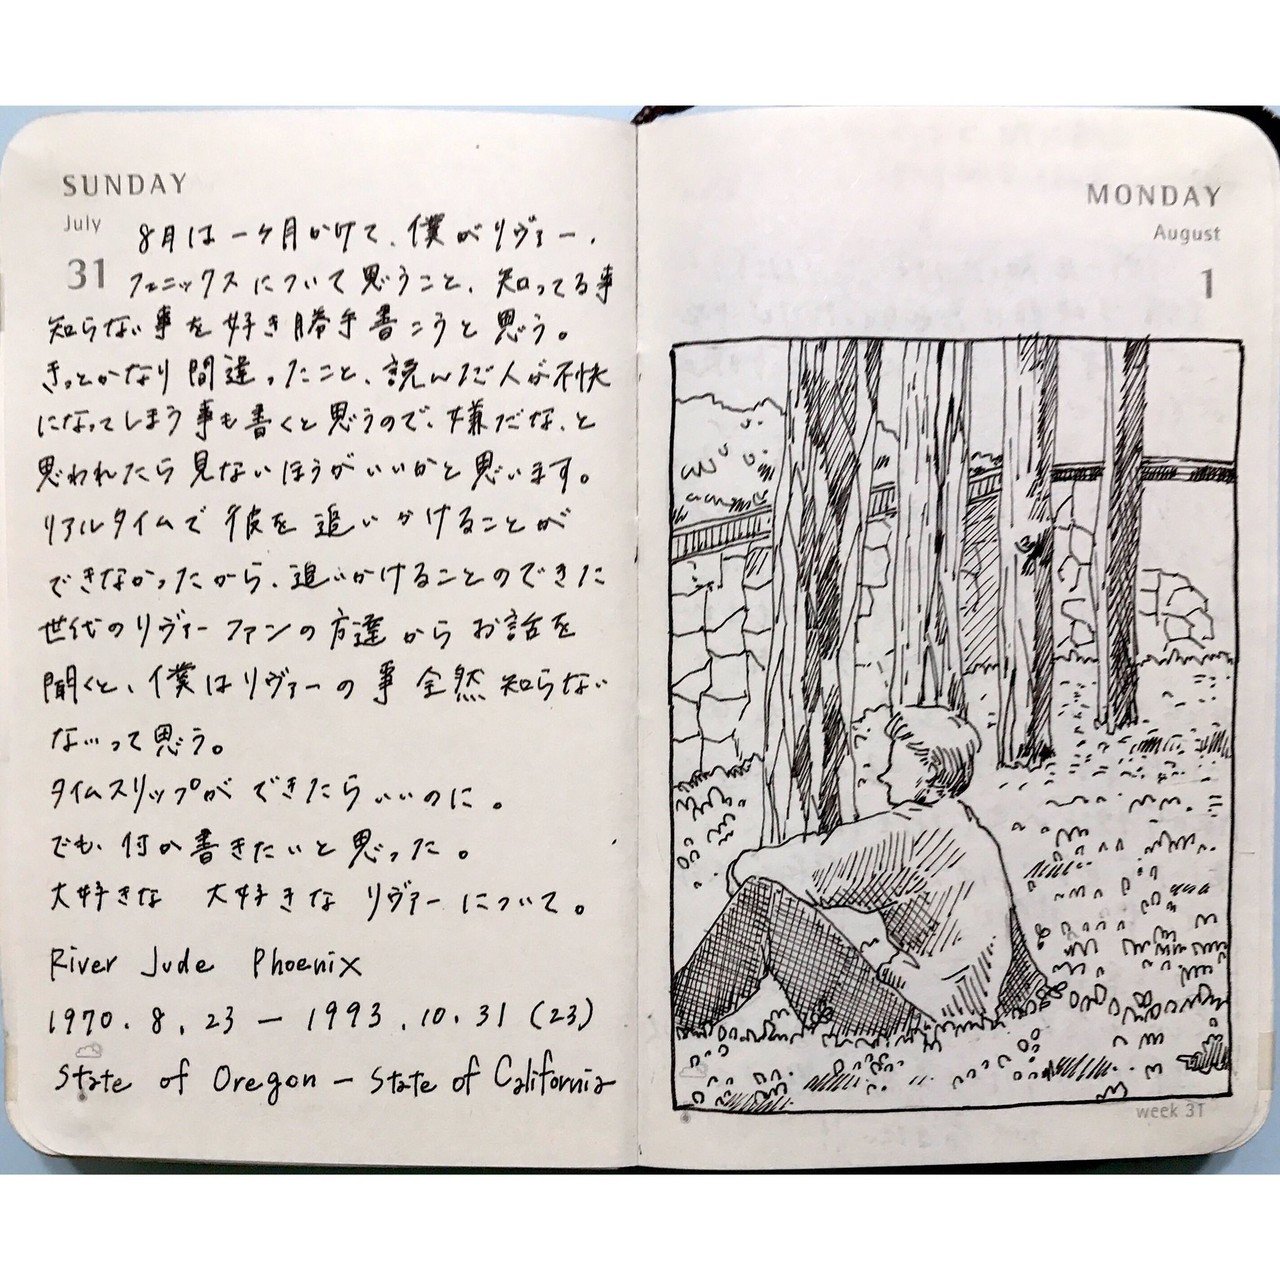 SUNDAY
July
31
8月は一ヶ月かけて、僕がリヴァー・
フェニックスについて思うこと、知ってる事
知らない事を好き勝手書こうと思う。
きっとかなり間違ったこと、読んだ人が不快
になってしまう事も書くと思うので、嫌だな、と
思われたら見ないほうがいいかと思います。
リアルタイムで彼を追いかけることが
できなかったから、追いかけることのできた
世代のリヴァーファンの方達からお話を
聞くと、僕はリヴァーの事全然知らない
ないって思う。
タイムスリップができたらいいのに。
でも、何か書きたいと思った。
大好きな 大好きな リヴァーについて。
River Jude Phoenix
1970.8.23 — 1993.10.31 (23)
State of Oregon — State of California
MONDAY
August
1
week 31